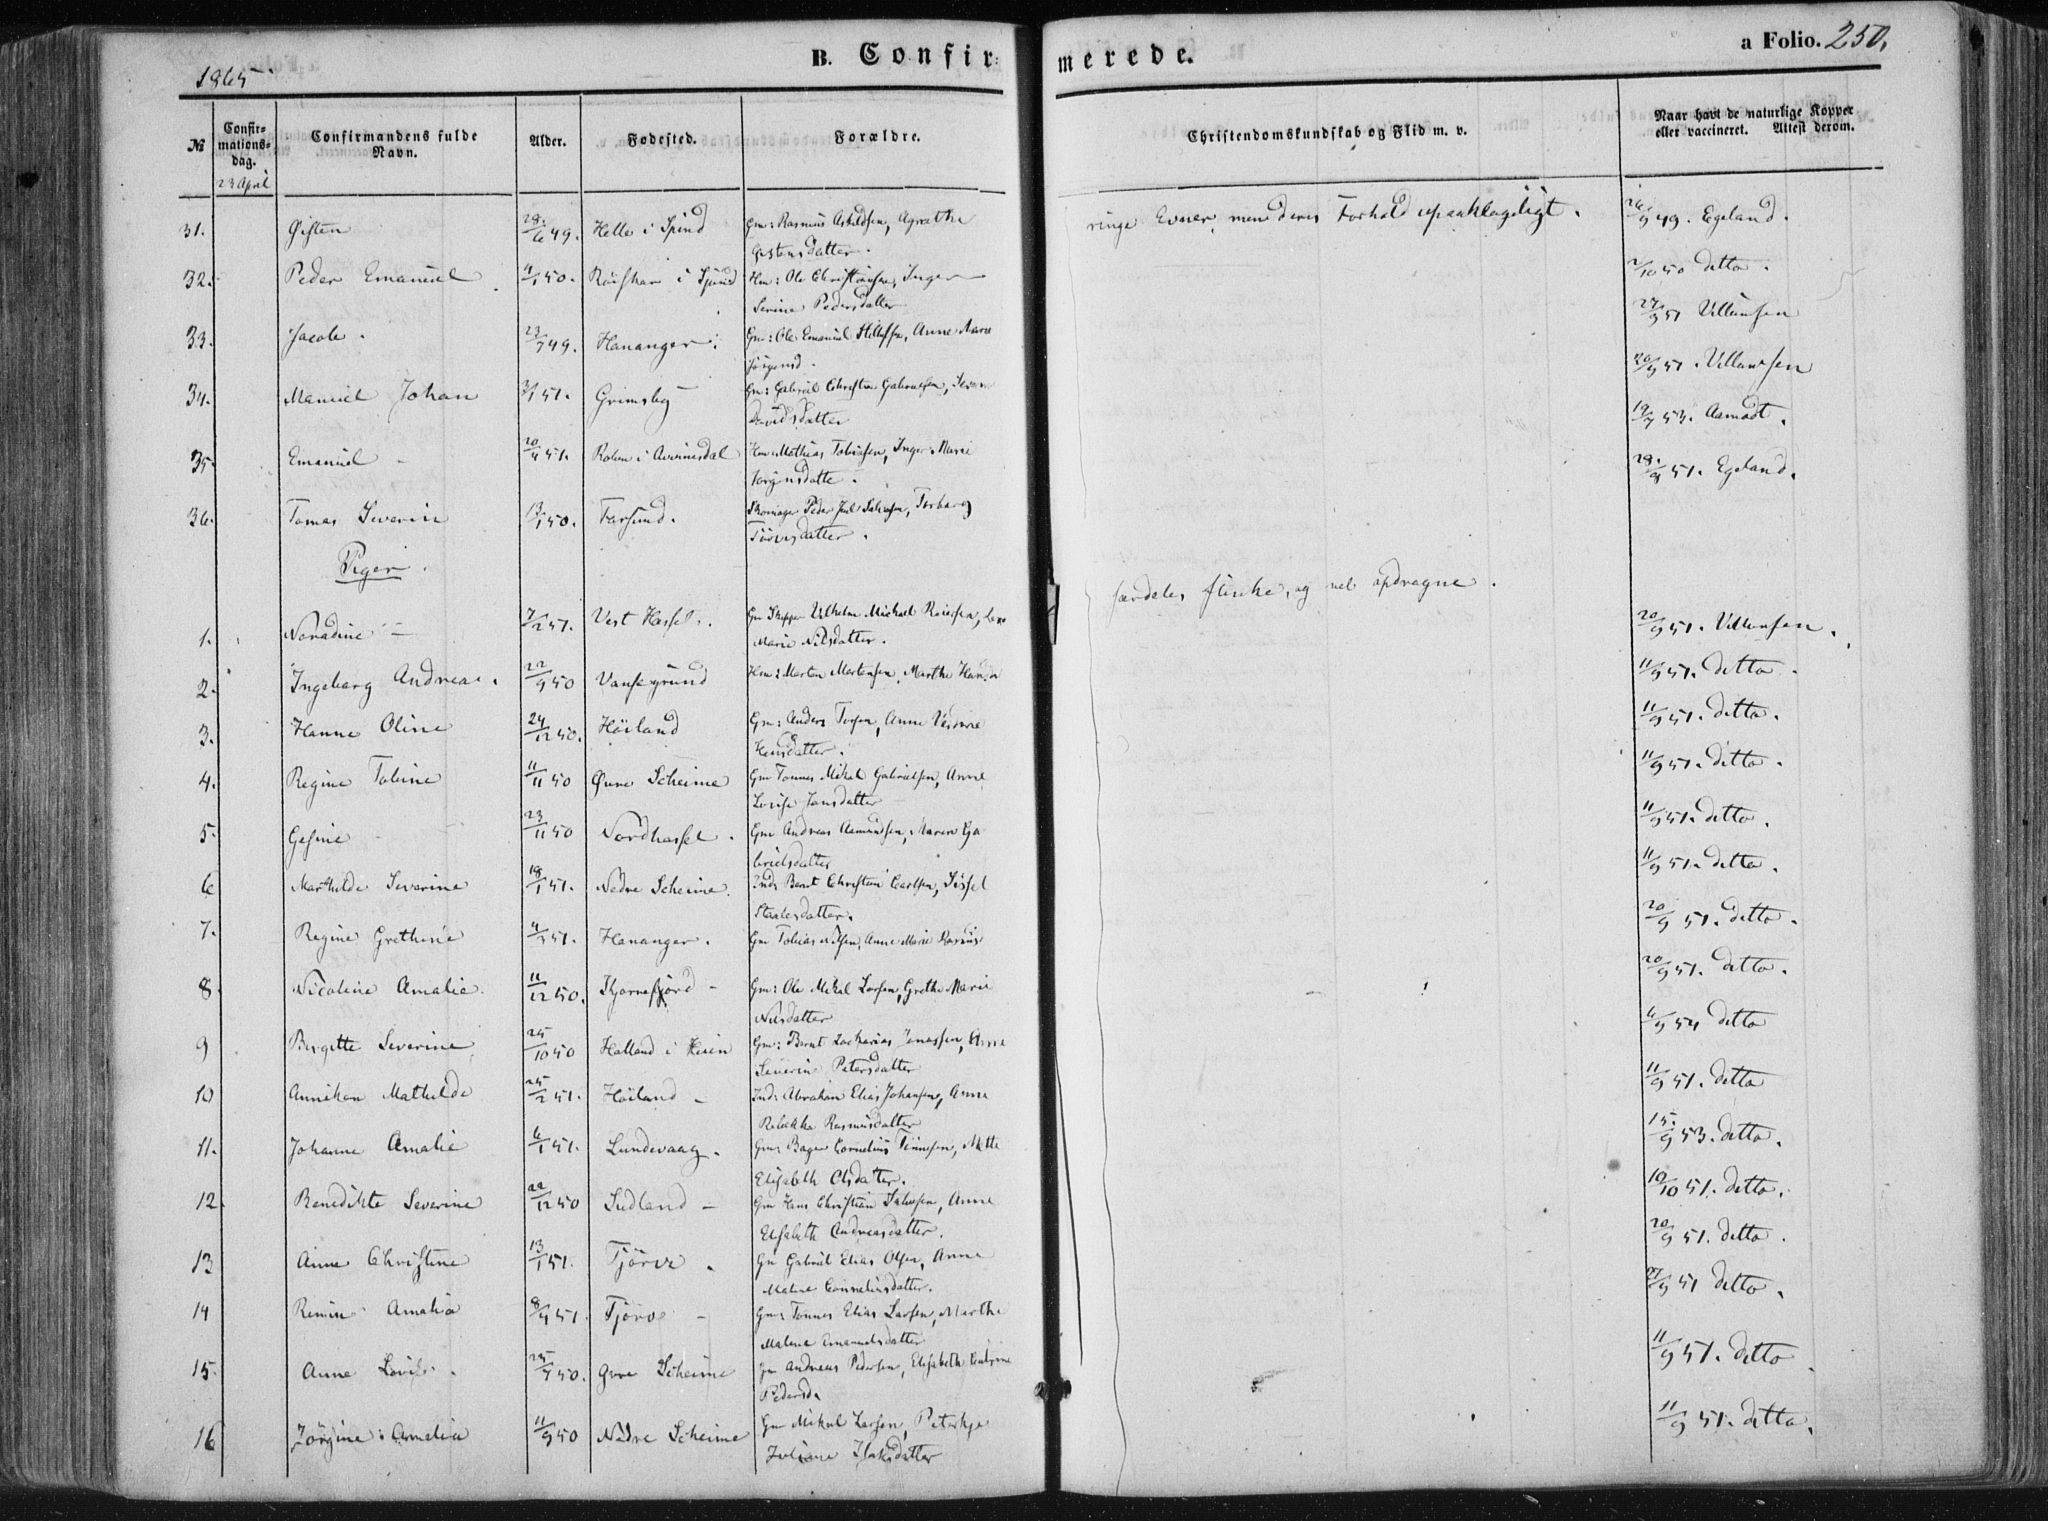 1865
B. Confir=
merede.
a Folio. 250.
№
Confir=
mations=
dag.
Confirmandens fulde
Navn.
Alder.
Fødested.
Forældre.
Christendomskundskab og Flid m. v.
Naar havt de naturlige Kopper
eller vaccineret. Attest derom.
23 April
31. Gisten 28/6 49. Helle i Spind Gm: Rasmus Askildsen, Agnethe
Gistensdatter.
ringe Evner, men deres Forhold upaaklageligt. 49. Egeland.
32. Peder Emanuel 50. i Spind Hm: Ole Christiansen, Inger
Serine Pedersdatter
2/10 50 ditto.
33. Jacob. 23/7 49. Hananger. Gm: Ole Emanuel Anne Marie
Jørgensd.
51 Villumsen
34. Manuel Johan 3/1 51. Grimsby Gm: Gabriel Christian Gabrielsen,
Davidsdatter
20/9 51. Villumsen
19/7 53. Aamodt.
35. Emanuel 51. i Qvinesdal Hm: Mathias Tobiassen, Inger Marie
Jørgensdatte.
51. Egeland.
36. Tomas Severin 13/1 50. Farsund. Skomager Peder Juel Salvesen, Torborg
datter.
Piger.
særdeles flinke, og vel opdragne.
1. Noradine 7/12 51. Vest Hassel. Gm Skipper Vilhelm Michael Reiersen,
Marie Nilsdatter.
20/9 51. Villumsen.
2. Ingeborg Andrea. 22/9 50 Vansegrund Hm: Morten Mortensen, Marthe
11/9 51. ditto.
3. Hanne Oline 24/12 50. Høiland Gm: Anders Anne
datter.
11/9 51. ditto.
4. Regine Tobine 11/11 50 Øvre Scheime Gm Tønnes Mikal Gabrielsen, Anne
Lovise Jansdatter
11/9 51. ditto.
5. Gesine 23/11 50 Nordhassel. Gm Andreas Aamundsen, Maren Ga
brielsdatter
11/9 51. ditto.
6 Marthilde Severine 18/1 51. Nedre Scheime. Ind: Bernt Christian Carlsen, Sissel
Staalesdatter.
11/9 51. ditto.
7. Regine Grethine 51. Hananger. Gm Tobias Nilsen, Anne Marie Rasmus
20/9 51. ditto.
8. Nicoline Amalie. 11/12 50. Gm: Ole Mikal Larsen, Grethe Marie
Nilsdatter
20/9 51. ditto.
9 Bergette Severine 25/10 50 Halland i Gm: Bernt Zacharias Jonassen, Anne
Severine Petersdatter
ditto
10 Anniken Mathilde 25/2 51. Høiland Ind: Abraham Elias Johansen, Anne
Rebekka Rasmusdatter
11/9 51. ditto
11. Johanne Amalie 6/1 51. Lundevaag. Gm: Bager Cornelius Tønnesen, Mette
Elisabeth Olsdatter.
15/9 53. ditto.
12. Benedikte Severine 22/12 50 Sudland Gm Hans Christian Salvesen, Anne
Elisabeth Andreasdatter.
10/10 51. ditto.
13 Anne Christine 13/1 51. Tjörve. Gm Gabriel Elias Olsen, Anne
Malene Corneliusdatter.
20/9 51. ditto.
14 Amalia 8/4 51. Tjörve Gm: Tønnes Elias Larsen, Marthe
Malene Emanuelsdatter
27/9 51 ditto.
15. Anne Lovise. 25/7 50. Øvre Scheime Gm Andreas Pedersen, Elisabeth
Pedersd.
11/9 51. ditto.
16 Jörgine Amalia 11/9 50 Nedre Scheime Gm Mikal Larsen,
Juliane Isaksdatter
11/9 51. ditto.